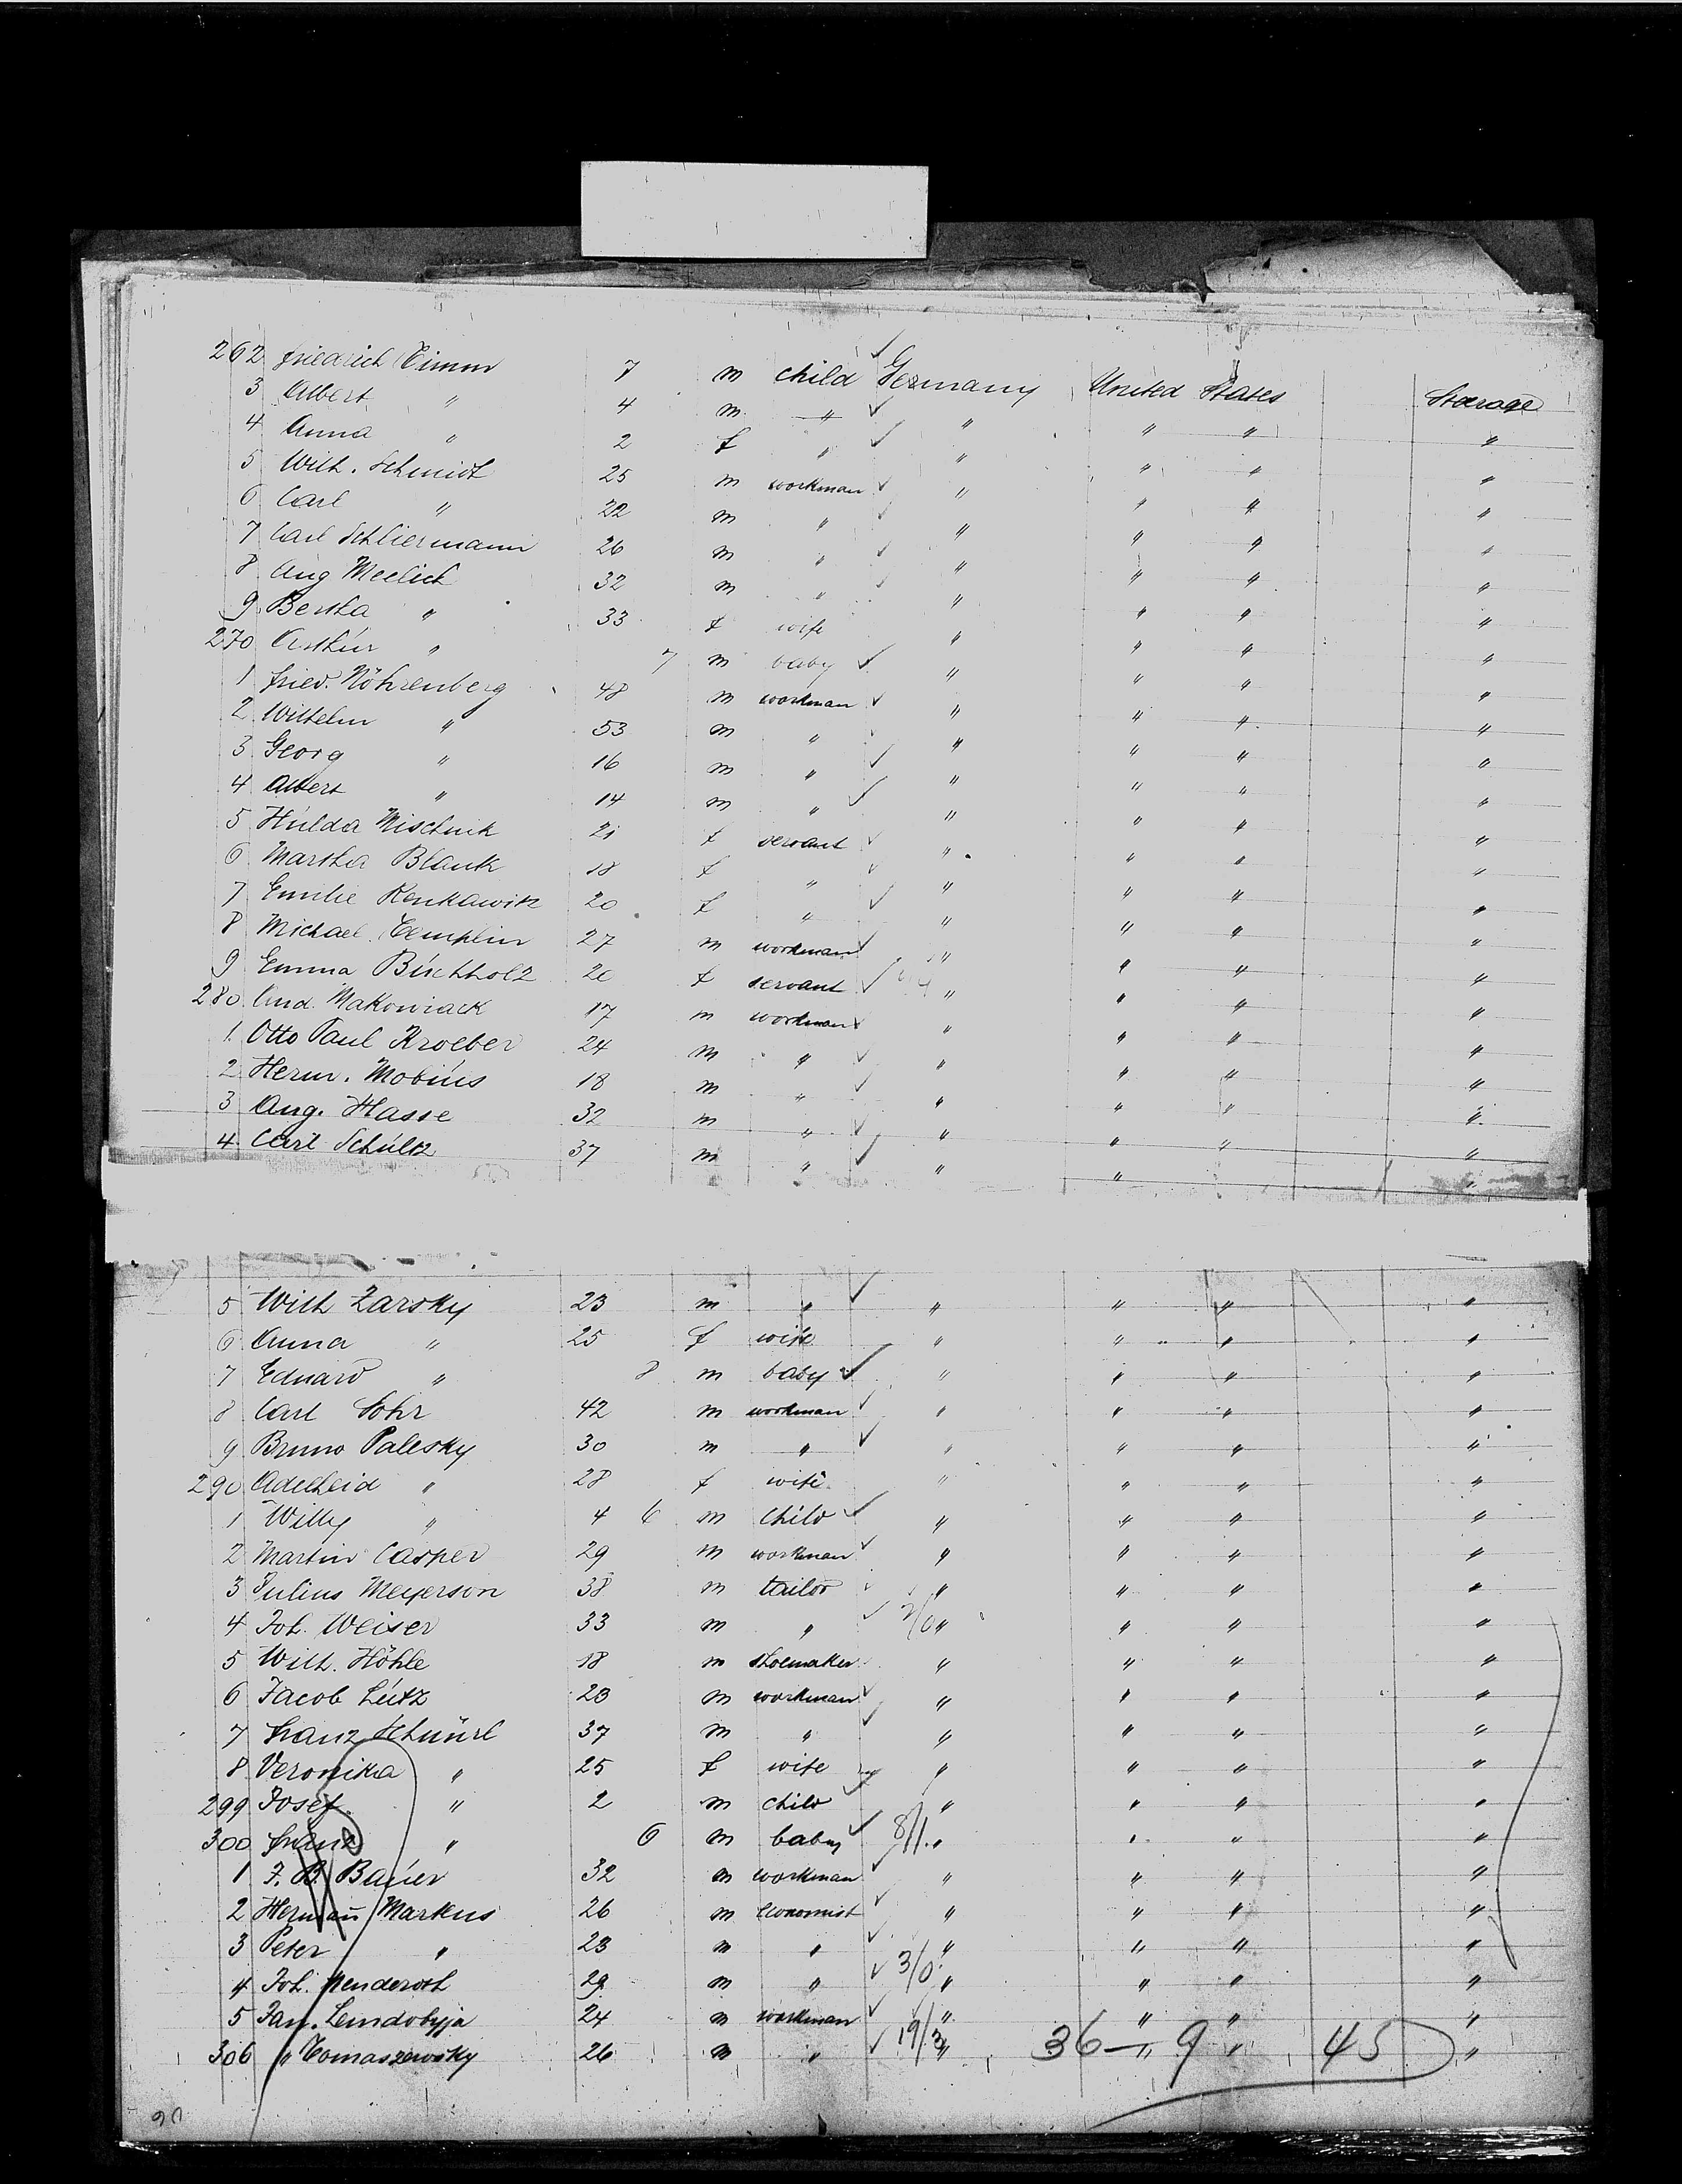 262 Friedrich Timm 7 m child ✓ Germany United States Steerage
3 Albert " 4 m " ✓ " " " "
4 Anna " 2 f " ✓ " " " "
5 Wilh. Schmidt 25 m workman ✓ " " " "
6 Carl " 22 m " ✓ " " " "
7 Carl Schliermann 26 m " ✓ " " " "
8 Aug Meelich 32 m " ✓ " " " "
9 Bertha " 33 f wife " " " "
270 Arthur " 7 m baby ✓ " " " "
1 Fried. Nöhrenberg 48 m workman ✓ " " " "
2 Wilhelm " 53 m " " " " "
3 Georg " 16 m " ✓ " " " "
4 Albert " 14 m " ✓ " " " "
5 Hulda Mischnik 21 f servant ✓ " " " "
6 Martha Blank 18 f " ✓ " " " "
7 Emilie Renkawitz 20 f " ✓ " " " "
8 Michael Templin 27 m workman ✓ " " " "
9 Emma Buchholz 20 f servant ✓ " " " "
280 And. Makowiack 17 m workman ✓ " " " "
1 Otto Paul Kroeber 24 m " ✓ " " " "
2 Herm. Mobius 18 m " ✓ " " " "
3 Aug. Hasse 32 m " ✓ " " " "
4 Carl Schultz 37 m " ✓ " " "
5 Wilh Zarsky 23 m " ✓ " " " "
6 Anna " 25 f wife " " " "
7 Eduard " 8 m baby ✓ " " " "
8 Carl Sohr 42 m workman ✓ " " " "
9 Bruno Palesky 30 m " ✓ " " " "
290 Adelheid " 28 f wife " " " "
1 Willy " 4 6 m child ✓ " " " "
2 Martin Casper 29 m workman ✓ " " " "
3 Julius Meyerson 38 m tailor ✓ " " " "
4 Joh. Weiser 33 m " ✓ 2/0 " " " "
5 Wilh. Höhle 18 m shoemaker " " " "
6 Jacob Lutz 23 m workman ✓ " " " "
7 Franz Schnürl 37 m " ✓ " " " "
8 Veronika " 25 f wife " " " "
299 Josef " 2 m child ✓ " " " "
300 Franz " 6 m baby ✓ 8/1. " " " "
1 J. B. Bauer 32 m workman ✓ " " " "
2 Hermañ Markus 26 m economist ✓ " " " "
3 Peter " 23 m " ✓ " " " "
4 Joh. Nenderoth 29 m " ✓ 3/0 " " " "
5 Jan. Lendobyja 24 m workman ✓ " " " "
306 " Tomaszewsky 26 m " ✓ 19/3 " " " "
36 — 9 45